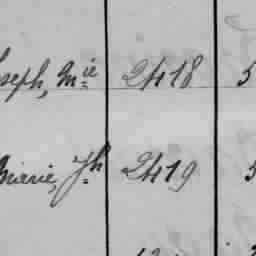 oseph, Mie 2418 5
Marie, Jh 2419 5